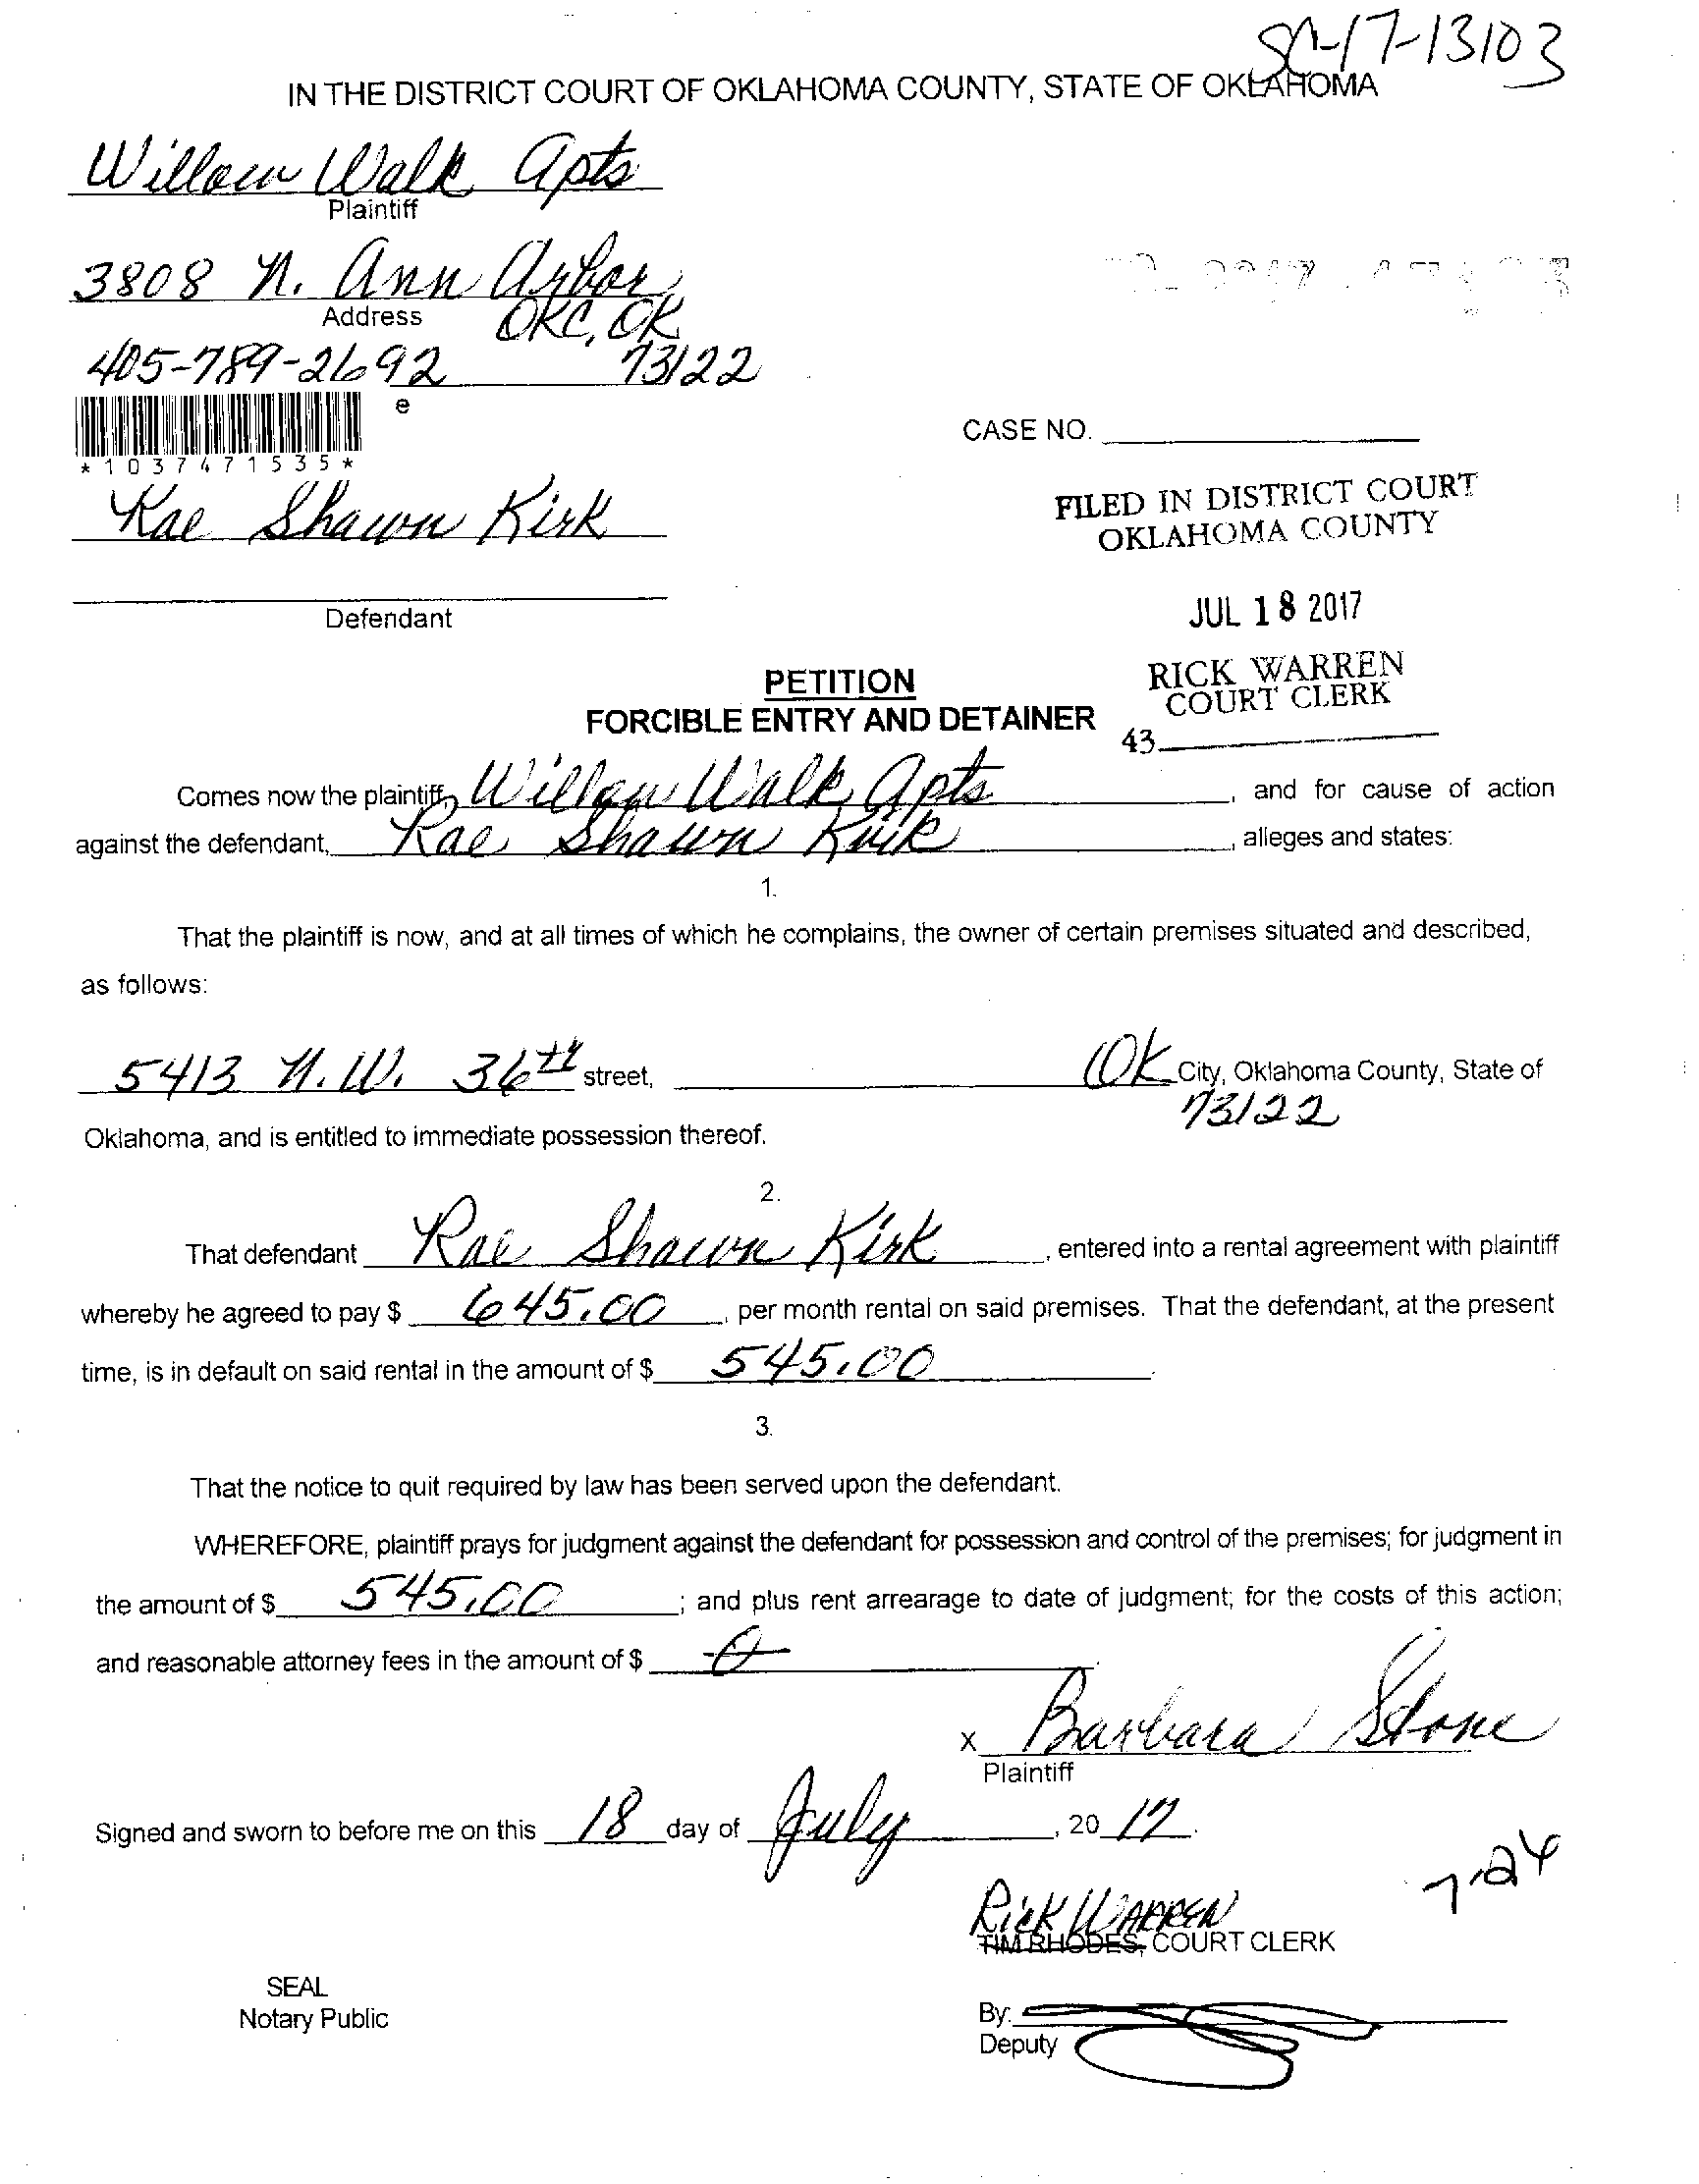 SC-17-13103
IN THE DISTRICT COURT OF OKLAHOMA COUNTY, STATE OF OKLAHOMA
Willow Walk Apts
Plaintiff
3808 N. Ann Arbor
Address
OKC, OK
405-789-2692 73122
e
*1037471535*
CASE NO.
Rae Shawn Kirk
Defendant
FILED IN DISTRICT COURT
OKLAHOMA COUNTY
JUL 18 2017
RICK WARREN
COURT CLERK
43
PETITION
FORCIBLE ENTRY AND DETAINER
Comes now the plaintiff, Willow Walk Apts, and for cause of action
against the defendant, Rae Shawn Kirk, alleges and states:
1.
That the plaintiff is now, and at all times of which he complains, the owner of certain premises situated and described,
as follows:
5413 N.W. 36th street, OK City, Oklahoma County, State of
73122
Oklahoma, and is entitled to immediate possession thereof.
2.
That defendant Rae Shawn Kirk, entered into a rental agreement with plaintiff
whereby he agreed to pay $ 645.00, per month rental on said premises. That the defendant, at the present
time, is in default on said rental in the amount of $ 545.00.
3.
That the notice to quit required by law has been served upon the defendant.
WHEREFORE, plaintiff prays for judgment against the defendant for possession and control of the premises; for judgment in
the amount of $ 545.00; and plus rent arrearage to date of judgment; for the costs of this action;
and reasonable attorney fees in the amount of $ 0
x Barbara Stone
Plaintiff
Signed and sworn to before me on this 18 day of July, 2017.
7-24
Rick WARREN
TIM RHODES, COURT CLERK
SEAL
Notary Public
By:
Deputy